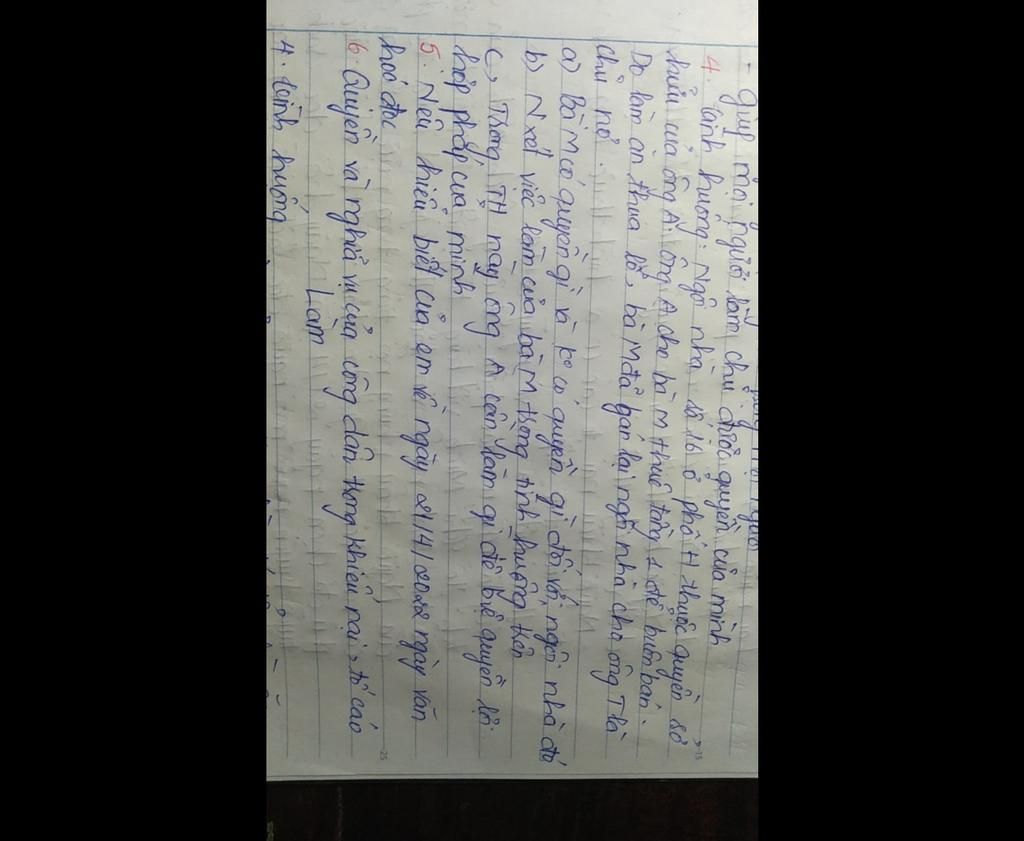 - giúp mọi người làm chủ được quyền của mình
4. Tình huống: Ngôi nhà số 16 ở phố H thuộc quyền sở
hữu của ông A. ông A cho bà M thuê tầng 1 để buôn bán.
Do làm ăn thua lỗ, bà M đã gán lại ngôi nhà cho ông T là
chủ nợ.
a) Bà M có quyền gì và ko có quyền gì đối với ngôi nhà đó
b) N xét việc làm của bà M trong tình huống trên
c, Trong TH này ông A cần làm gì để bvệ quyền lợi
hợp pháp của mình
5. Nêu hiểu biết của em về ngày 21/4/2022 ngày văn
hoá đọc
6. Quyền và nghĩa vụ của công dân trong khiếu nại, tố cáo
Làm
4. Tình huống